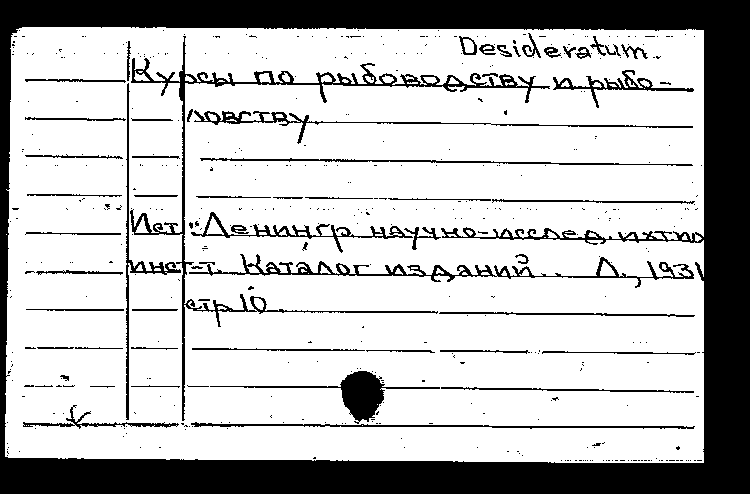 Desideratum.
Курсы по рыбоводству и рыбо-
ловству.
Ист.: "Ленингр. научно-исслед. ихтио
инст-т. Каталог изданий.. Л., 1931
стр. 10.